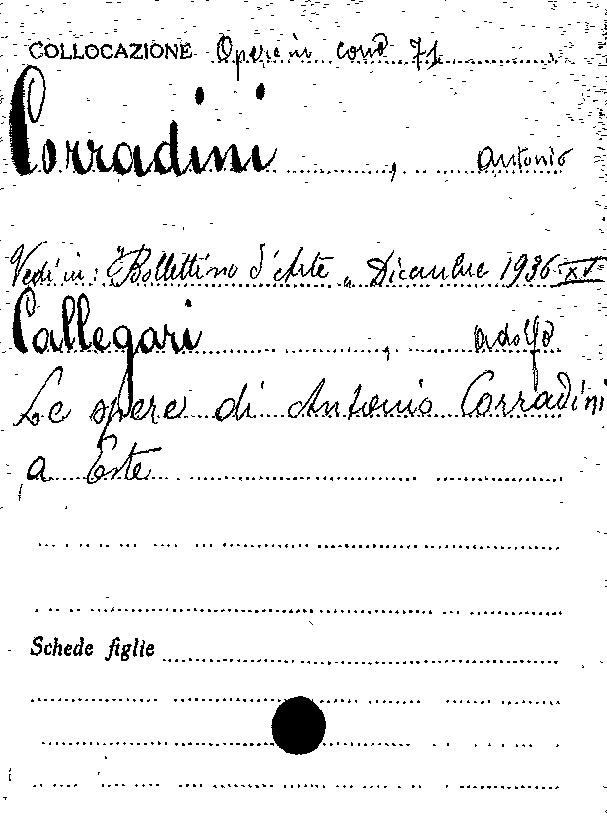 COLLOCAZIONE Opere in cond 71
Corradini, Antonio
Vedi in: "Bollettino d'Arte" Dicembre 1936 XV
Callegari, Adolfo
Le opere di Antonio Corradini
a Este
Schede figlie